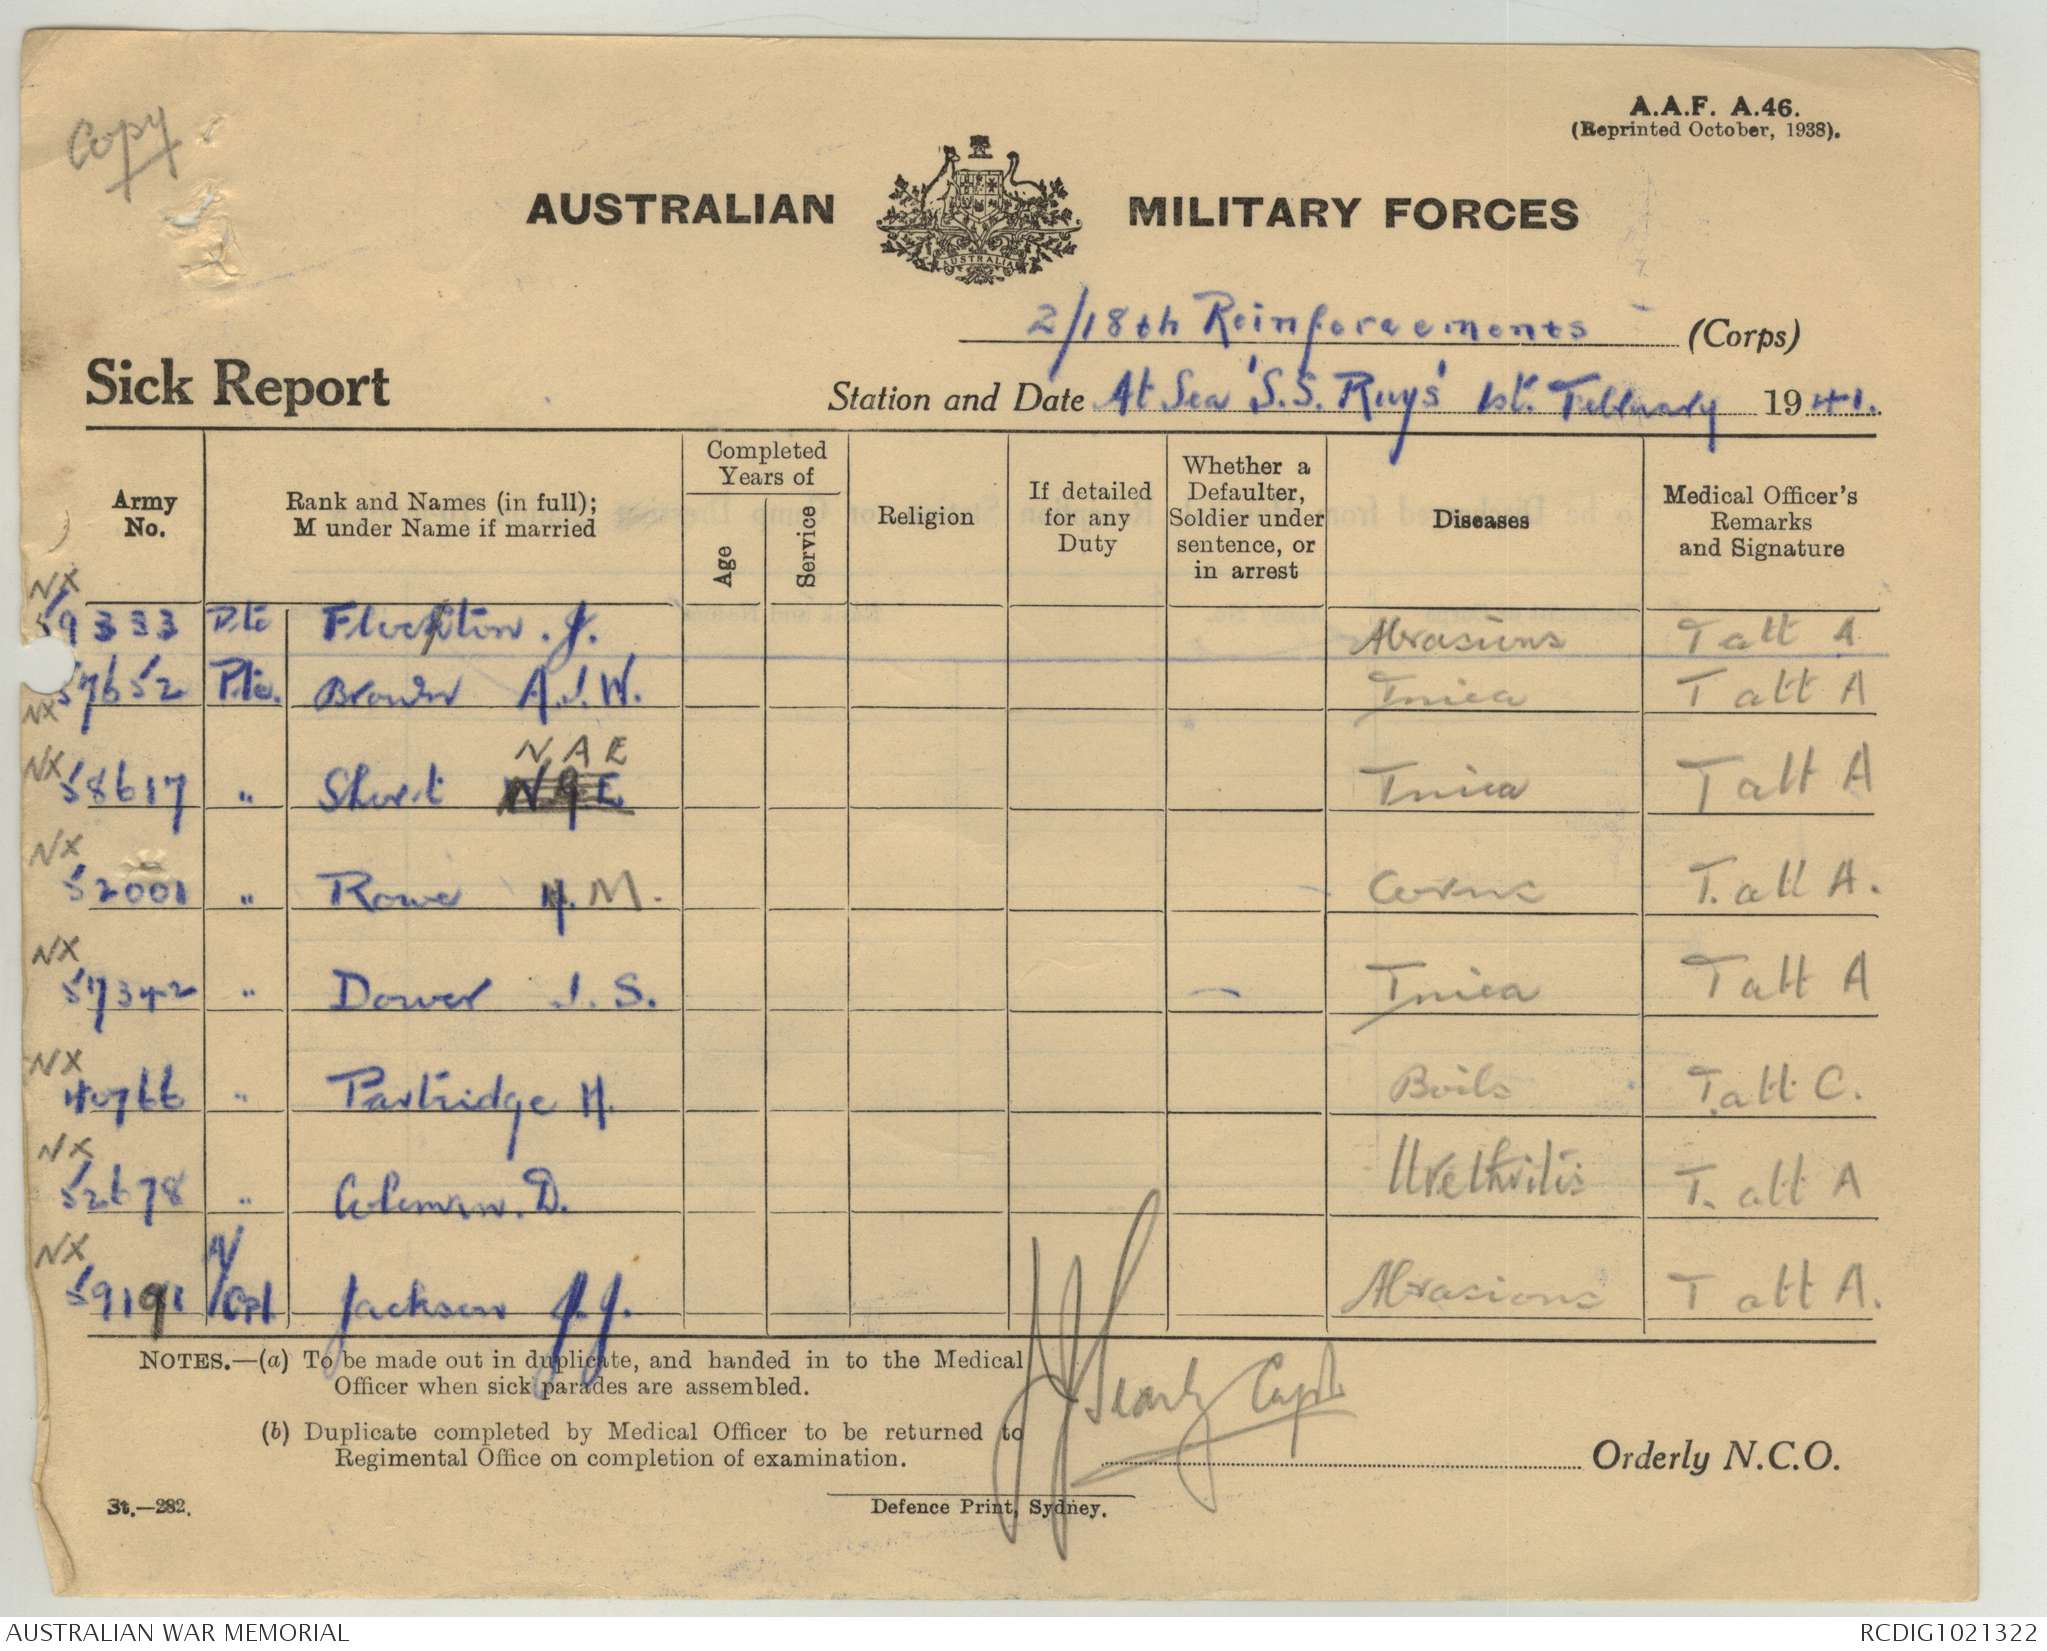 Copy
A.A.F. A.46.
(Reprinted October, 1938).
AUSTRALIAN MILITARY FORCES
AUSTRALIA
2/18th Reinforcements (Corps)
Sick Report
Station and Date At Sea 'S.S. Ruys' 1st. February 1941.
Army No.
Rank and Names (in full); M under Name if married
Completed Years of
Age
Service
Religion
If detailed for any Duty
Whether a Defaulter, Soldier under sentence, or in arrest
Diseases
Medical Officer's Remarks and Signature
NX 59333 Pte Flockton. J. Abrasions T att A
NX 57652 Pte. Brown A.J.W. Tinea T att A
NX 58617 " Short N A E Tinea T att A
NX 52001 " Rowe H. M. Corns T. att A.
NX 57342 " Dower J. S. Tinea T att A
NX 40766 " Partridge H. Boils T. att C.
NX 52678 " Coleman. D. Urethritis T. att A
NX 59191 A/Cpl Jackson J.J. Abrasions T att A.
NOTES.—(a) To be made out in duplicate, and handed in to the Medical
Officer when sick parades are assembled.
(b) Duplicate completed by Medical Officer to be returned to
Regimental Office on completion of examination.
Capt
Orderly N.C.O.
St.—282.
Defence Print, Sydney.
AUSTRALIAN WAR MEMORIAL
RCDIG1021322